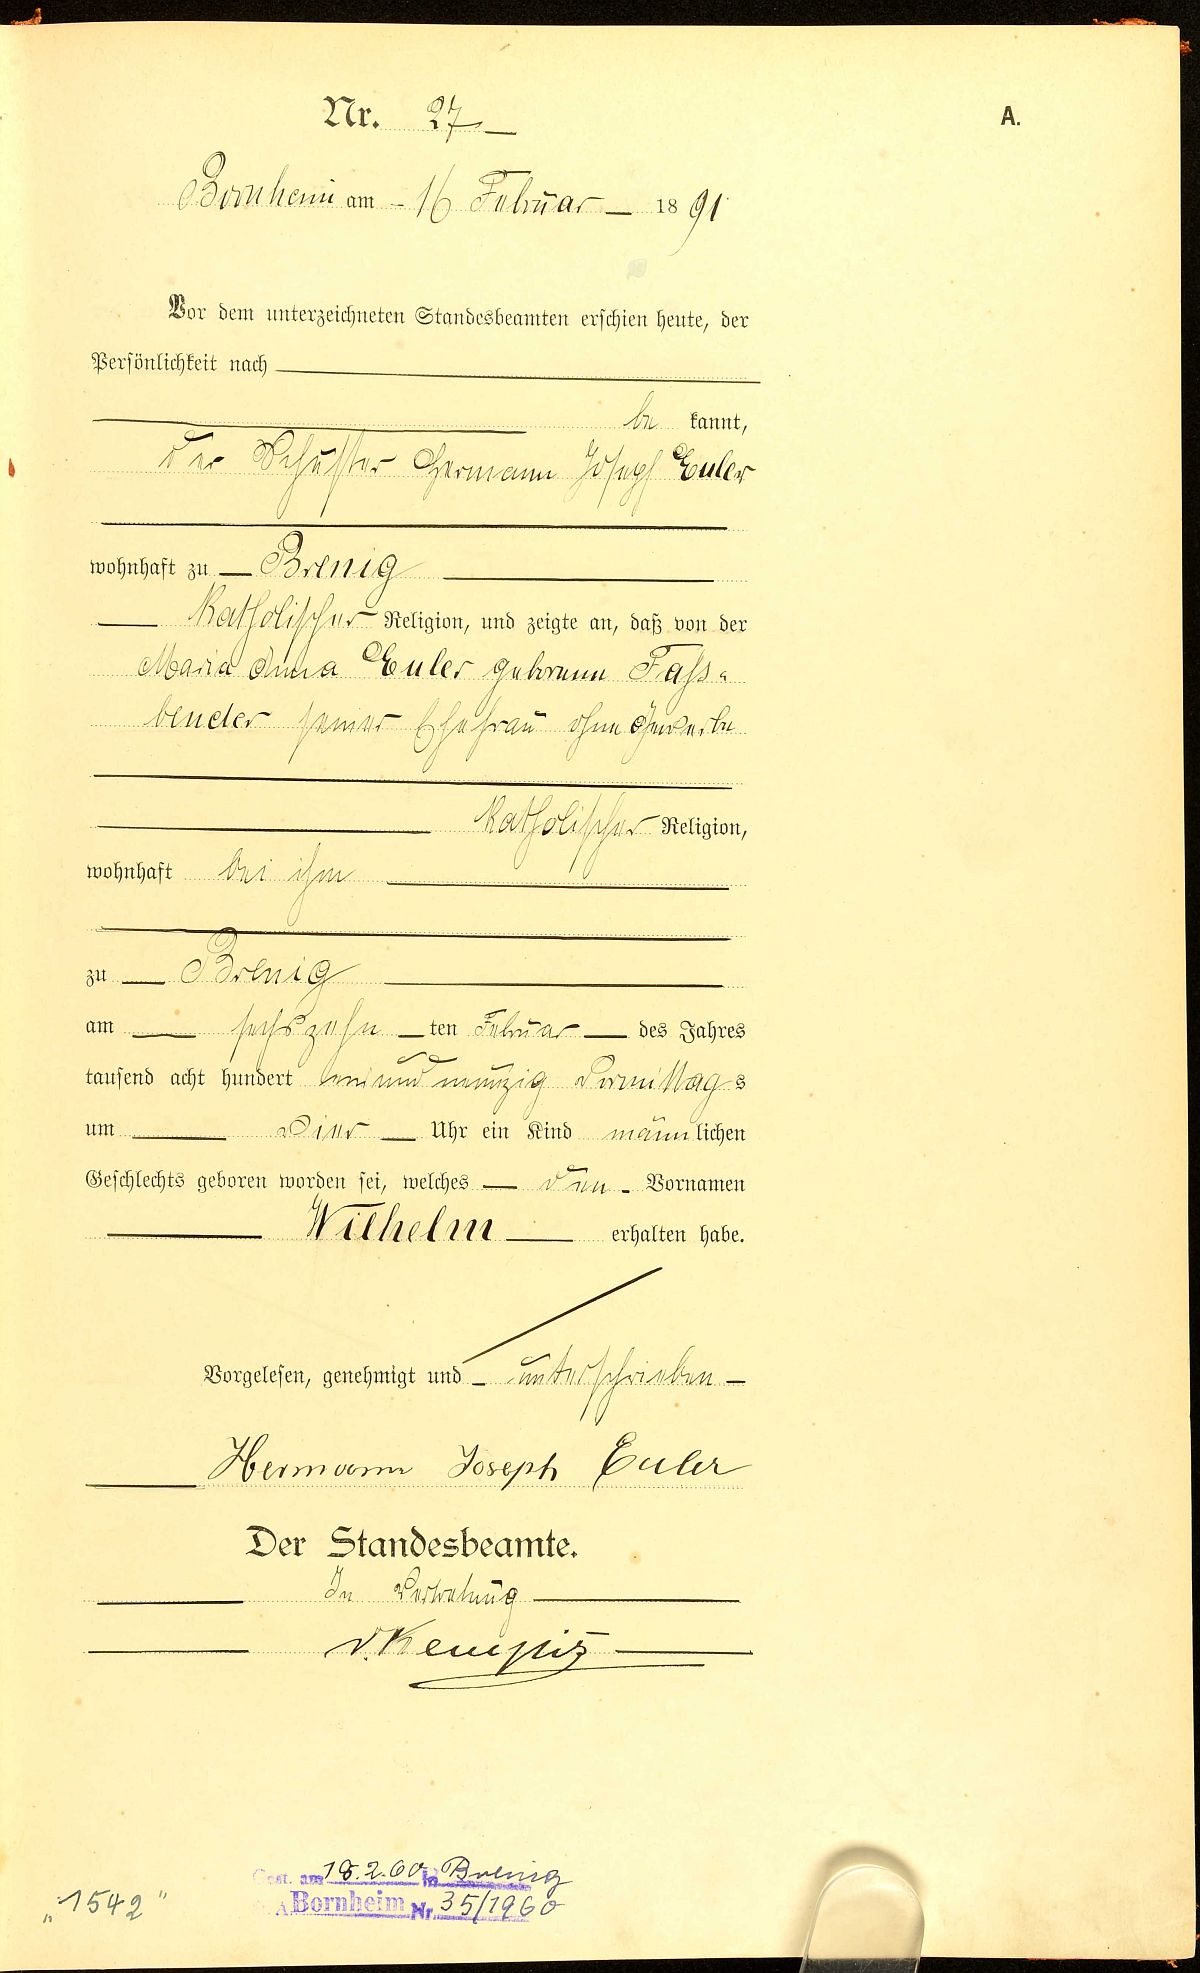 Nr. 27
A.
Bornheim am 16 Februar 1891
Vor dem unterzeichneten Standesbeamten erschien heute, der
Persönlichkeit nach
be kannt,
der Schuster Hermann Joseph Euler
wohnhaft zu Brenig
katholischer Religion, und zeigte an, daß von der
Maria Anna Euler geborenen Fass-
bender seiner Ehefrau ohne Gewerbe
katholischer Religion,
wohnhaft bei ihm
zu Brenig
am sechszehn ten Februar des Jahres
tausend acht hundert ein und neunzig Vormittags
um vier Uhr ein Kind männlichen
Geschlechts geboren worden sei, welches den Vornamen
Wilhelm erhalten habe.
Vorgelesen, genehmigt und unterschrieben
Hermann Joseph Euler
Der Standesbeamte.
In Vertretung
v. Kempis
Gest. am 2.60 in Brenig
Bornheim Nr. 35/1960
„1542"